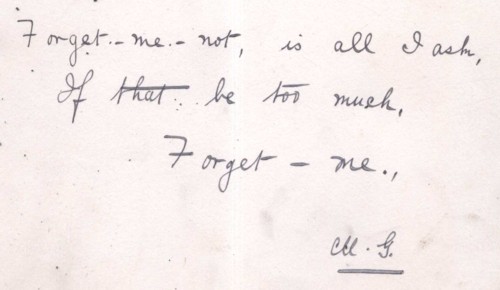 Forget-me-not, is all I ask,
If that be too much,
Forget-me.,
M. G.